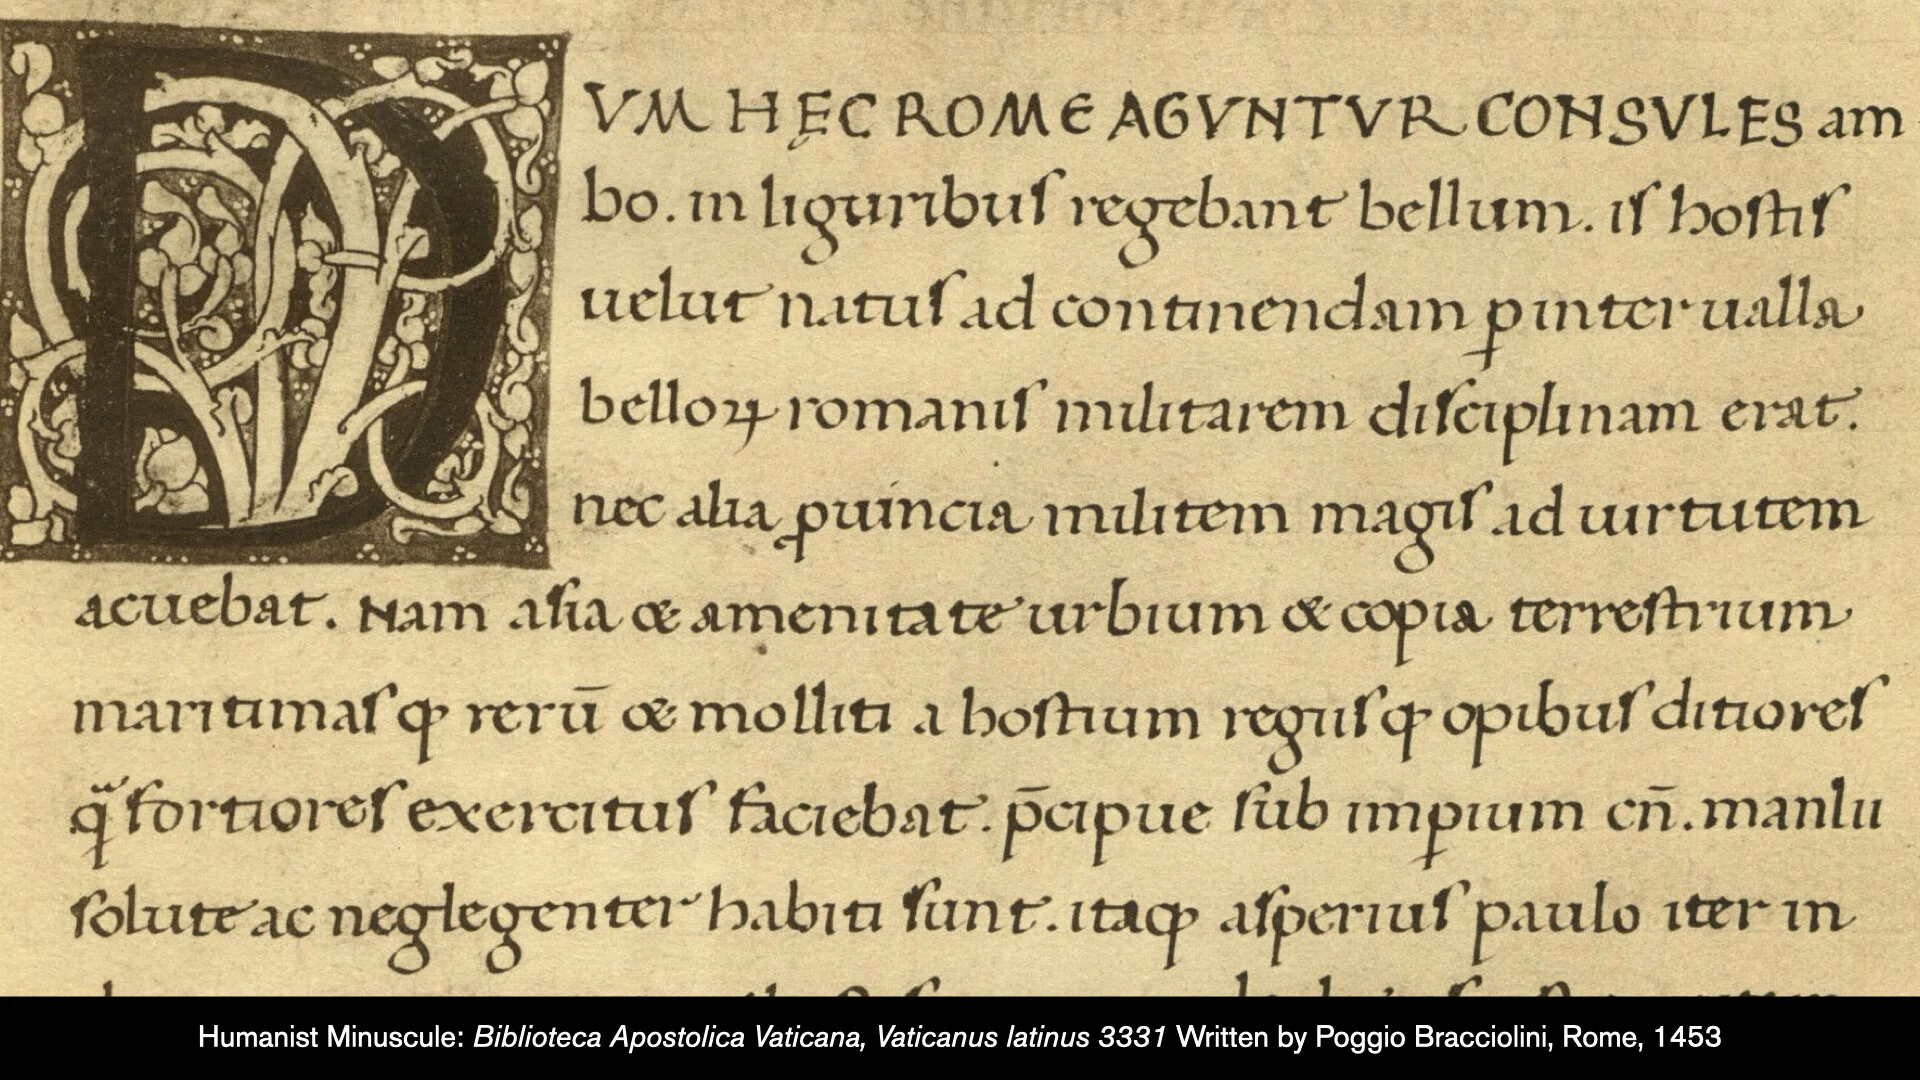 DVM HĘC ROME AGVNTVR CONSVLES am
bo. in liguribuſ regebant bellum. iſ hoſtiſ
uelut natuſ ad continendam ꝑ interualla
belloꝝ romaniſ militarem diſciplinam erat.
nec alia ꝓuincia militem magiſ ad uirtutem
acuebat. Nam aſia & amenitate urbium & copia terreſtrium
maritimaſqꝫ rerū & molliti a hoſtium regiiſqꝫ opibuſ ditioreſ
qᷓ fortioreſ exercituſ faciebat. p̄cipue ſub imꝑium cn̄. manlii
ſolute ac neglegenter habiti ſunt. itaqꝫ aſperiuſ paulo iter in
Humanist Minuscule: Biblioteca Apostolica Vaticana, Vaticanus latinus 3331 Written by Poggio Bracciolini, Rome, 1453